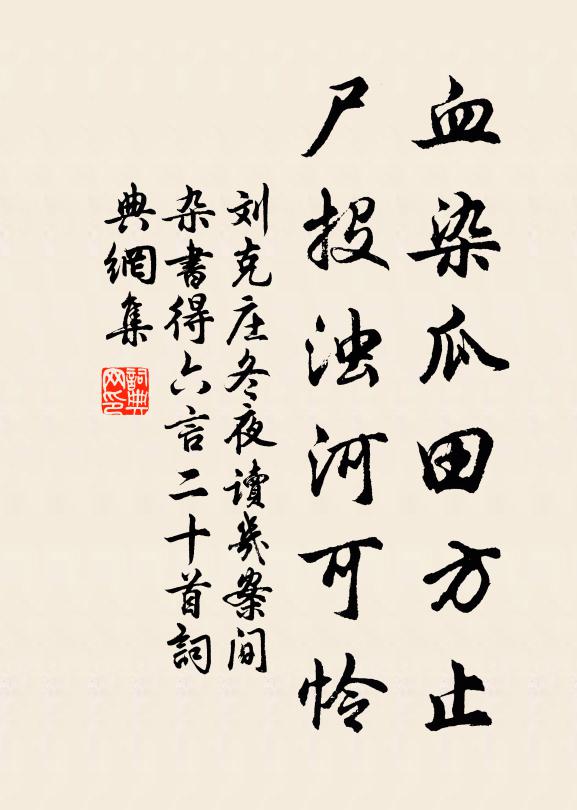 血染瓜田方止
尸投浊河可怜
刘克庄冬夜读几案间
杂书得六言二十首詞
典網集
詞典網印